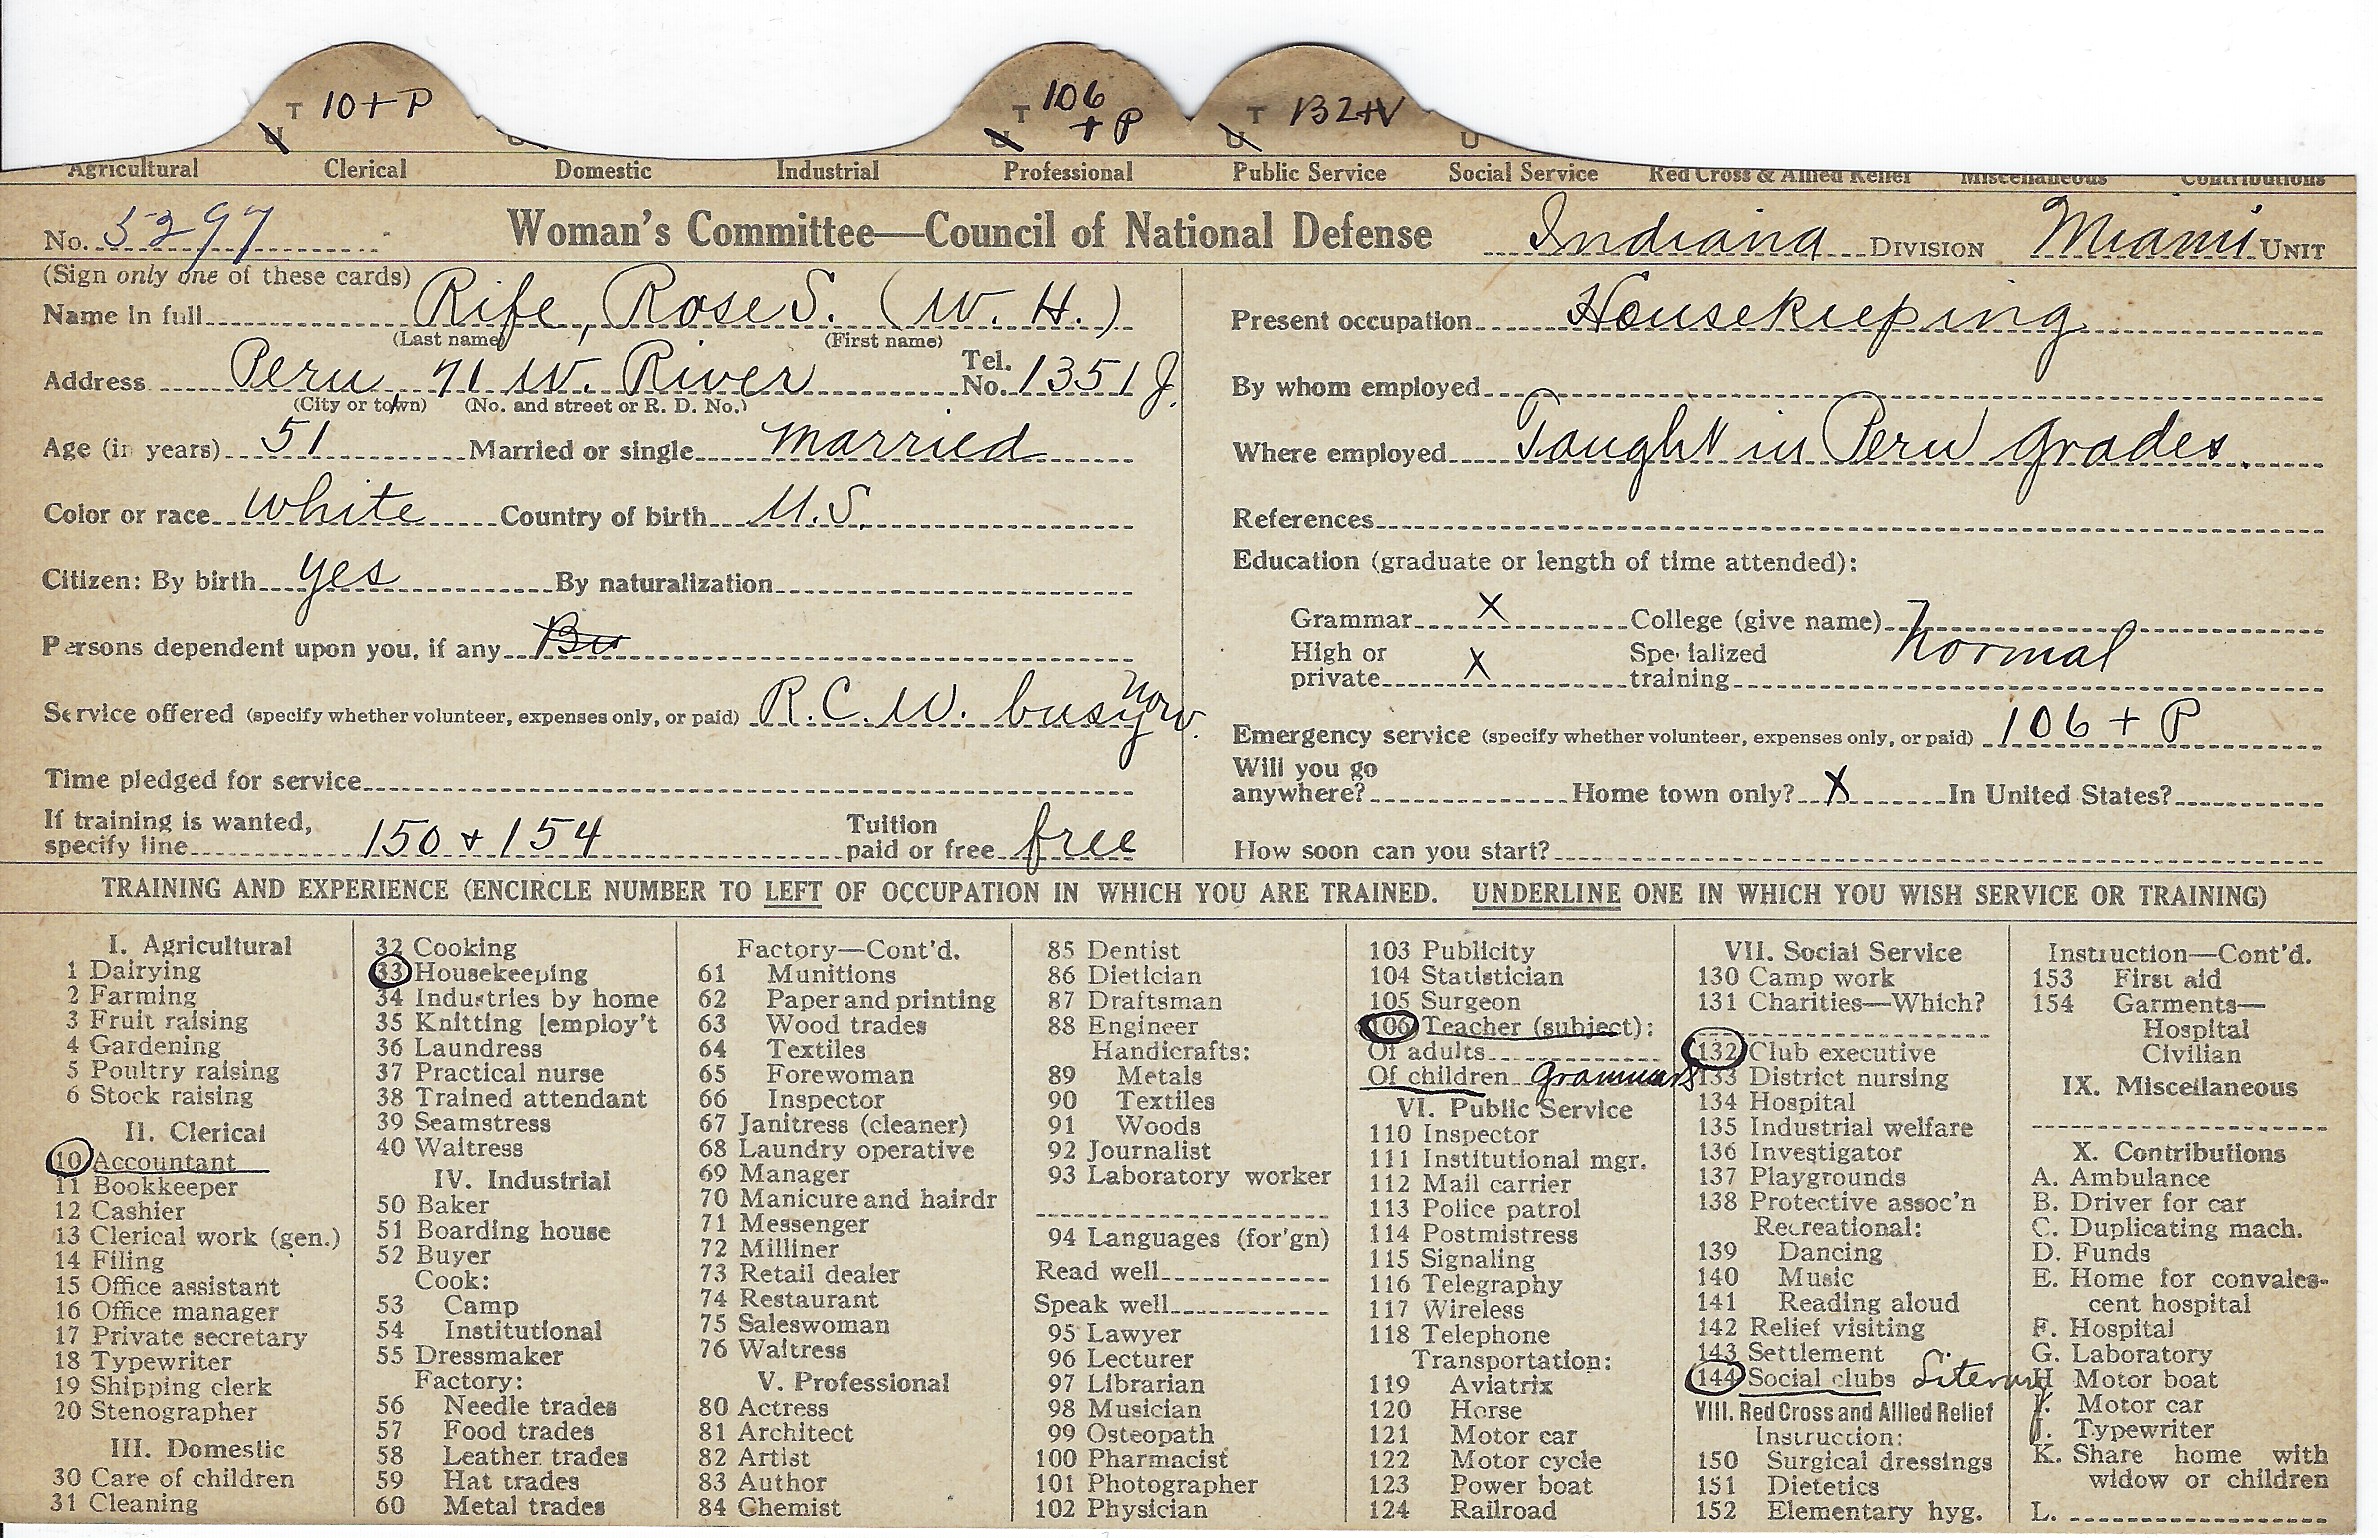 T 10 + P T 106 + P T 132 + V
U U U U
Agricultural Clerical Domestic Industrial Professional Public Service Social Service Red Cross & Allied Relief Miscellaneous Contributions
No. 5297 Woman's Committee—Council of National Defense Indiana DIVISION Miami UNIT
(Sign only one of these cards)
Name in full Rife, Rose S. (W. H.)
(Last name) (First name)
Address Peru 71 W. River Tel. No. 1351 J.
(City or town) (No. and street or R. D. No.)
Age (in years) 51 Married or single married
Color or race white Country of birth U.S.
Citizen: By birth yes By naturalization
Persons dependent upon you, if any
Service offered (specify whether volunteer, expenses only, or paid) R.C.W. busy now.
Time pledged for service
If training is wanted,
specify line 150 + 154 Tuition paid or free free
Present occupation Housekeeping
By whom employed
Where employed Taught in Peru grades.
References
Education (graduate or length of time attended):
Grammar X College (give name)
High or private X Specialized training Normal
Emergency service (specify whether volunteer, expenses only, or paid) 106 + P
Will you go
anywhere? Home town only? X In United States?
How soon can you start?
TRAINING AND EXPERIENCE (ENCIRCLE NUMBER TO LEFT OF OCCUPATION IN WHICH YOU ARE TRAINED. UNDERLINE ONE IN WHICH YOU WISH SERVICE OR TRAINING)
I. Agricultural
1 Dairying
2 Farming
3 Fruit raising
4 Gardening
5 Poultry raising
6 Stock raising
II. Clerical
10 Accountant
11 Bookkeeper
12 Cashier
13 Clerical work (gen.)
14 Filing
15 Office assistant
16 Office manager
17 Private secretary
18 Typewriter
19 Shipping clerk
20 Stenographer
III. Domestic
30 Care of children
31 Cleaning
32 Cooking
33 Housekeeping
34 Industries by home
35 Knitting [employ't
36 Laundress
37 Practical nurse
38 Trained attendant
39 Seamstress
40 Waitress
IV. Industrial
50 Baker
51 Boarding house
52 Buyer
Cook:
53 Camp
54 Institutional
55 Dressmaker
Factory:
56 Needle trades
57 Food trades
58 Leather trades
59 Hat trades
60 Metal trades
Factory—Cont'd.
61 Munitions
62 Paper and printing
63 Wood trades
64 Textiles
65 Forewoman
66 Inspector
67 Janitress (cleaner)
68 Laundry operative
69 Manager
70 Manicure and hairdr
71 Messenger
72 Milliner
73 Retail dealer
74 Restaurant
75 Saleswoman
76 Waitress
V. Professional
80 Actress
81 Architect
82 Artist
83 Author
84 Chemist
85 Dentist
86 Dietician
87 Draftsman
88 Engineer
Handicrafts:
89 Metals
90 Textiles
91 Woods
92 Journalist
93 Laboratory worker
94 Languages (for'gn)
Read well
Speak well
95 Lawyer
96 Lecturer
97 Librarian
98 Musician
99 Osteopath
100 Pharmacist
101 Photographer
102 Physician
103 Publicity
104 Statistician
105 Surgeon
106 Teacher (subject):
Of adults
Of children grammar
VI. Public Service
110 Inspector
111 Institutional mgr.
112 Mail carrier
113 Police patrol
114 Postmistress
115 Signaling
116 Telegraphy
117 Wireless
118 Telephone
Transportation:
119 Aviatrix
120 Horse
121 Motor car
122 Motor cycle
123 Power boat
124 Railroad
VII. Social Service
130 Camp work
131 Charities—Which?
132 Club executive
133 District nursing
134 Hospital
135 Industrial welfare
136 Investigator
137 Playgrounds
138 Protective assoc'n
Recreational:
139 Dancing
140 Music
141 Reading aloud
142 Relief visiting
143 Settlement
144 Social clubs Literary
VIII. Red Cross and Allied Relief
Instruction:
150 Surgical dressings
151 Dietetics
152 Elementary hyg.
Instruction—Cont'd.
153 First aid
154 Garments—
Hospital
Civilian
IX. Miscellaneous
X. Contributions
A. Ambulance
B. Driver for car
C. Duplicating mach.
D. Funds
E. Home for convales-
cent hospital
F. Hospital
G. Laboratory
H Motor boat
I. Motor car
J. Typewriter
K. Share home with
widow or children
L.